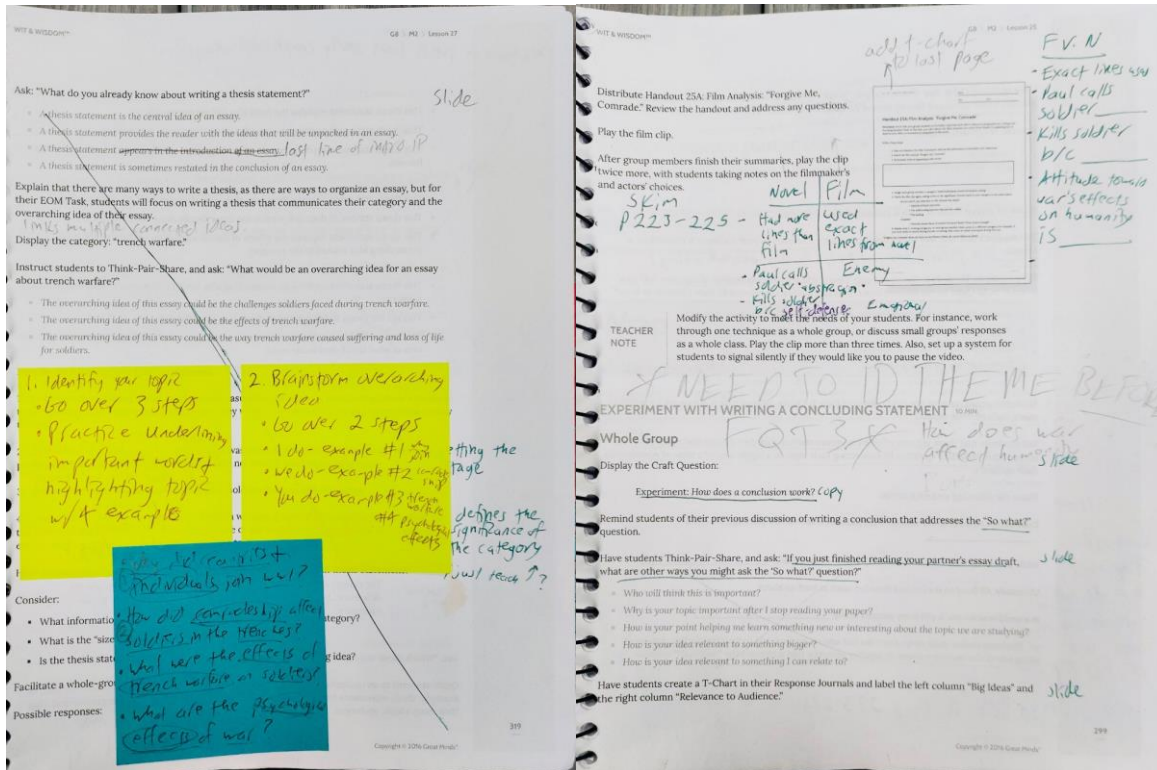 WIT & WISDOM™
G8 | M2 | Lesson 27
Ask: "What do you already know about writing a thesis statement?"
Slide
A thesis statement is the central idea of an essay.
A thesis statement provides the reader with the ideas that will be unpacked in an essay.
A thesis statement appears in the introduction of an essay. last line of intro
A thesis statement is sometimes restated in the conclusion of an essay.
Explain that there are many ways to write a thesis, as there are ways to organize an essay, but for
their EOM Task, students will focus on writing a thesis that communicates their category and the
overarching idea of their essay.
links multiple connected ideas
Display the category: "trench warfare."
Instruct students to Think-Pair-Share, and ask: "What would be an overarching idea for an essay
about trench warfare?"
The overarching idea of this essay could be the challenges soldiers faced during trench warfare.
The overarching idea of this essay could be the effects of trench warfare.
The overarching idea of this essay could be the way trench warfare caused suffering and loss of life
for soldiers.
1. Identify your topic
• Go over 3 steps
• Practice underlining
important words +
highlighting topic
w/4 examples
2. Brainstorm overarching
idea
• Go over 2 steps
• I do - example #1 join
• We do - example #2
• You do - example #3 trench
warfare
#4 psychological
effects
defines the
significance of
the category
just teach ↑ ?
individuals join war?
• How did comradeship affect
soldiers in the trenches?
• What were the effects of
trench warfare on soldiers?
• What are the psychological
effects of war?
Consider:
What
What is the "size
Is the thesis
idea?
Facilitate a
Possible responses:
319
Copyright © 2016 Great Minds®
WIT & WISDOM™
G8 | M2 | Lesson 25
add t-chart
to last page
Distribute Handout 25A: Film Analysis: "Forgive Me,
Comrade." Review the handout and address any questions.
Play the film clip.
After group members finish their summaries, play the clip
twice more, with students taking notes on the filmmaker's
and actors' choices.
Skim
P 223-225 -
Novel | Film
Had more
lines than
film
used
exact
lines from novel
• Paul calls
soldier
Enemy
- Kills soldier
b/c self-defense
Emotional
Handout 25A: Film Analysis: "Forgive Me, Comrade"
F v. N
• Exact lines used
• Paul calls
soldier ____
• Kills soldier
b/c ____
• Attitude towards
war's effects
on humanity
is ____
TEACHER
NOTE
Modify the activity to meet the needs of your students. For instance, work
through one technique as a whole group, or discuss small groups' responses
as a whole class. Play the clip more than three times. Also, set up a system for
students to signal silently if they would like you to pause the video.
* NEED TO ID THEME BEFORE
EXPERIMENT WITH WRITING A CONCLUDING STATEMENT 10 MIN.
FQT 3*
How does war
affect
Whole Group
slide
Display the Craft Question:
Experiment: How does a conclusion work? copy
Remind students of their previous discussion of writing a conclusion that addresses the "So what?"
question.
Have students Think-Pair-Share, and ask: "If you just finished reading your partner's essay draft,
what are other ways you might ask the 'So what?' question?"
slide
Who will think this is important?
Why is your topic important after I stop reading your paper?
How is your point helping me learn something new or interesting about the topic we are studying?
How is your idea relevant to something bigger?
How is your idea relevant to something I can relate to?
Have students create a T-Chart in their Response Journals and label the left column "Big Ideas" and
the right column "Relevance to Audience."
slide
299
Copyright © 2016 Great Minds®